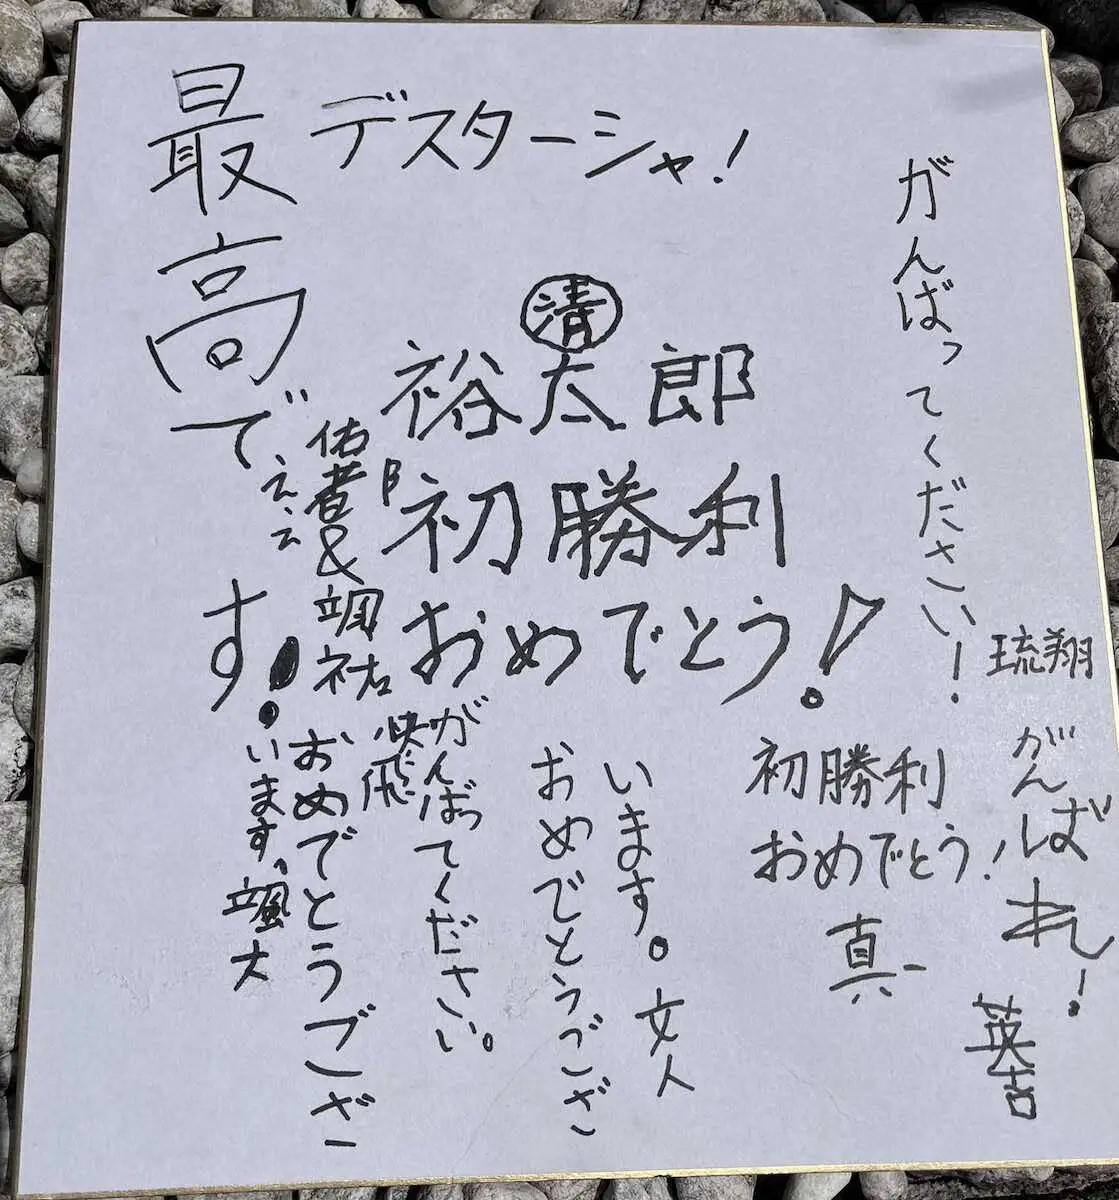 デスターシャ!
最高です!
清
裕太郎
初勝利
おめでとう!
がんばってください!
琉翔
がんばれ!
英吉
初勝利
おめでとう!
真
おめでとうござ
います。文人
がんばってください。
颯祐
おめでとうござ
います。颯大